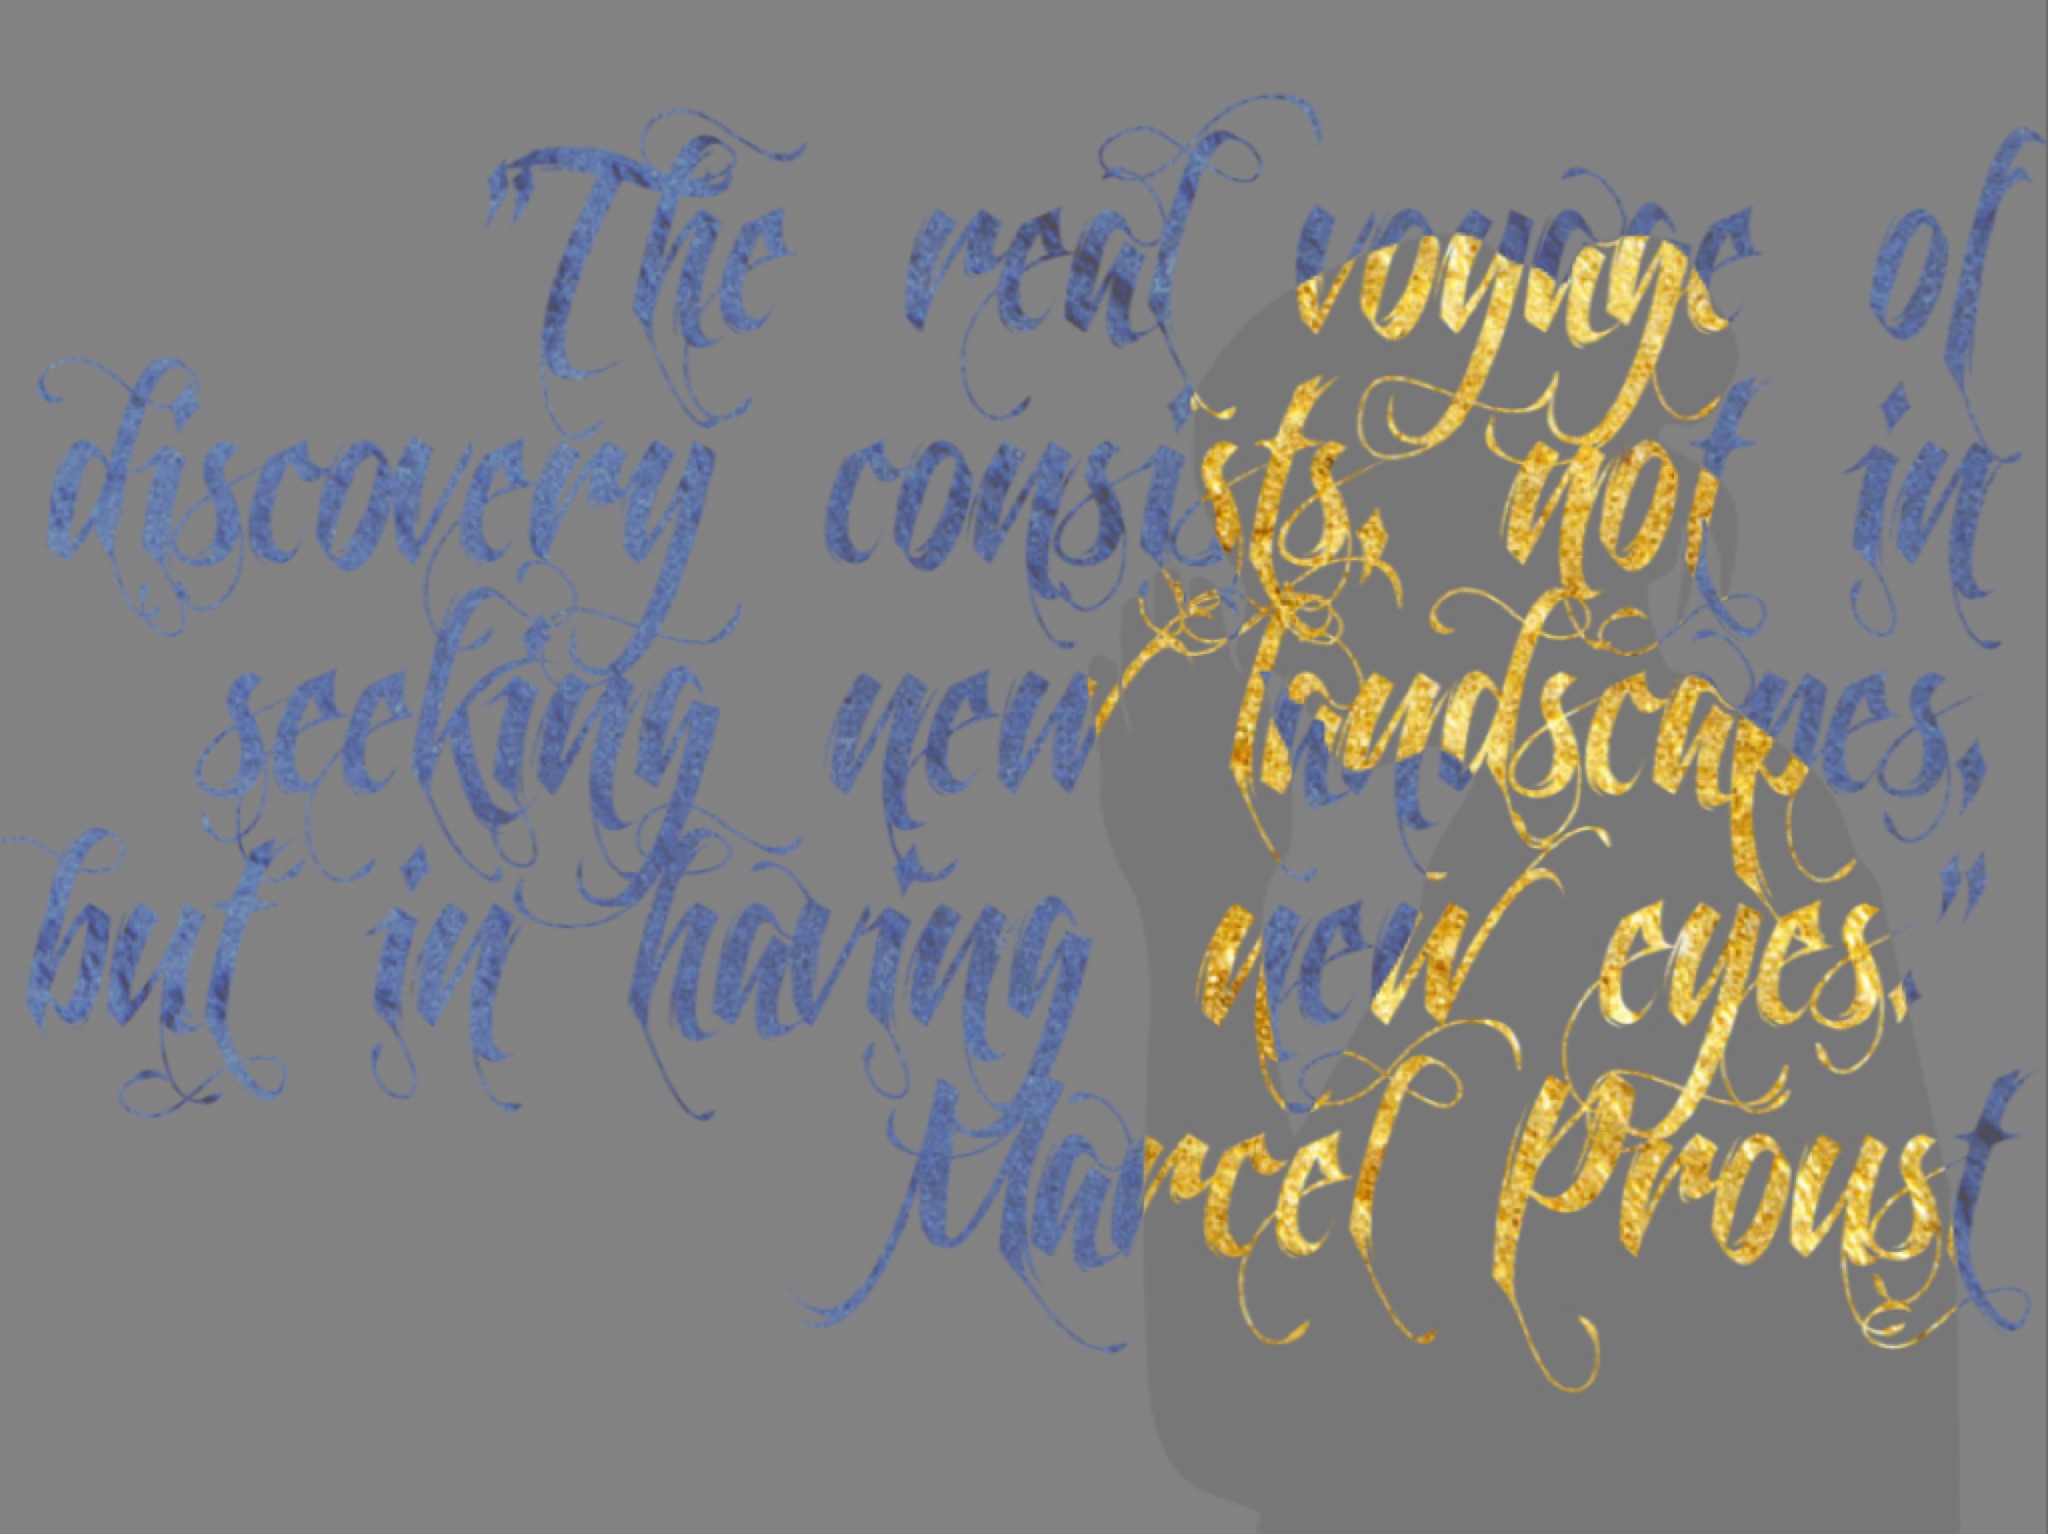 "The real voyage of
discovery consists, not in
seeking new landscapes,
but in having new eyes."
Marcel Proust